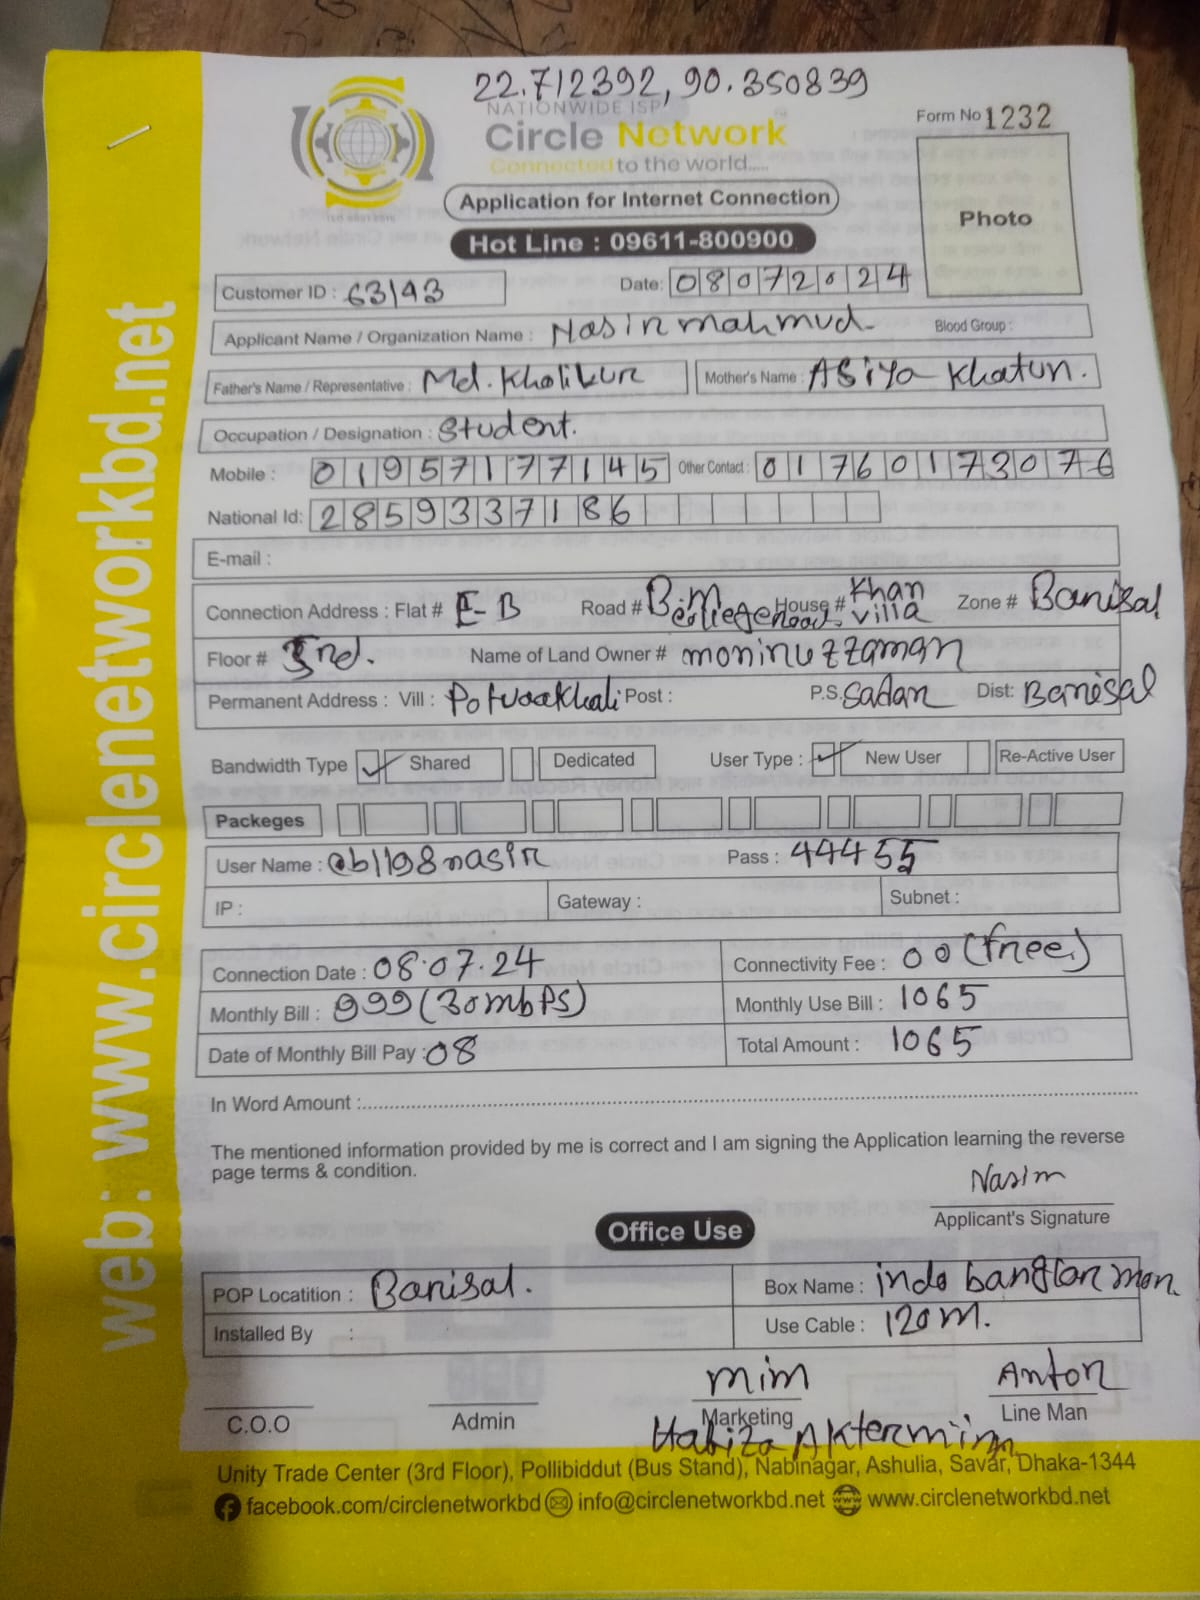 22.712392, 90.350839
NATIONWIDE ISP
Circle Network
Connected to the world.....
Form No 1232
Application for Internet Connection
Photo
Hot Line : 09611-800900
Customer ID : 63193
Date: 08072024
Applicant Name / Organization Name : Nasir mahmud
Blood Group :
Father's Name / Representative : Md. Kholikur
Mother's Name : ASiya Khatun.
Occupation / Designation : Student.
Mobile : 01957177145 Other Contact : 01760173076
National Id: 2859337186
E-mail :
Connection Address : Flat # E-B Road # B.M College Road, House # Khan villa Zone # Barisal
Floor # 3rd. Name of Land Owner # moniruzzaman
Permanent Address : Vill : Potuaakhali Post : P.S. Sadar Dist: Barisal
Bandwidth Type Shared Dedicated User Type : New User Re-Active User
Packeges
User Name : @b1198nasir Pass : 44455
IP : Gateway : Subnet :
Connection Date : 08.07.24 Connectivity Fee : 00 (free)
Monthly Bill : 999 (30mbPS) Monthly Use Bill : 1065
Date of Monthly Bill Pay : 08 Total Amount : 1065
In Word Amount :
The mentioned information provided by me is correct and I am signing the Application learning the reverse
page terms & condition.
Nasim
Applicant's Signature
Office Use
POP Locatition : Barisal. Box Name : indo banglar mor.
Installed By : Use Cable : 120m.
mim Anton
C.O.O Admin Marketing Line Man
Habiza Akter mim
Unity Trade Center (3rd Floor), Pollibiddut (Bus Stand), Nabinagar, Ashulia, Savar, Dhaka-1344
facebook.com/circlenetworkbd info@circlenetworkbd.net www.circlenetworkbd.net
web: www.circlenetworkbd.net